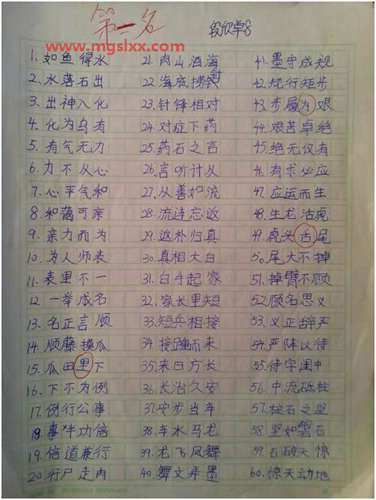 第一名
段欣雩
www.mgslxx.com
1. 如鱼得水
2. 水落石出
3. 出神入化
4. 化为乌有
5. 有气无力
6. 力不从心
7. 心平气和
8. 和蔼可亲
9. 亲力而为
10. 为人师表
11. 表里不一
12. 一举成名
13. 名正言顺
14. 顺藤摸瓜
15. 瓜田里下
16. 下不为例
17. 例行公事
18. 事半功倍
19. 倍道兼行
20. 行尸走肉
21. 肉山酒海
22. 海底捞针
23. 针锋相对
24. 对症下药
25. 药石之言
26. 言听计从
27. 从善如流
28. 流连忘返
29. 返朴归真
30. 真相大白
31. 白手起家
32. 家长里短
33. 短兵相接
34. 接踵而来
35. 来日方长
36. 长治久安
37. 安步当车
38. 车水马龙
39. 龙飞凤舞
40. 舞文弄墨
41. 墨守成规
42. 规行矩步
43. 步履为艰
44. 艰苦卓绝
45. 绝无仅有
46. 有求必应
47. 应运而生
48. 生龙活虎
49. 虎头尾
50. 尾大不掉
51. 掉臂不顾
52. 顾名思义
53. 义正辞严
54. 严阵以待
55. 待字闺中
56. 中流砥柱
57. 柱石之坚
58. 坚如磐石
59. 石破天惊
60. 惊天动地